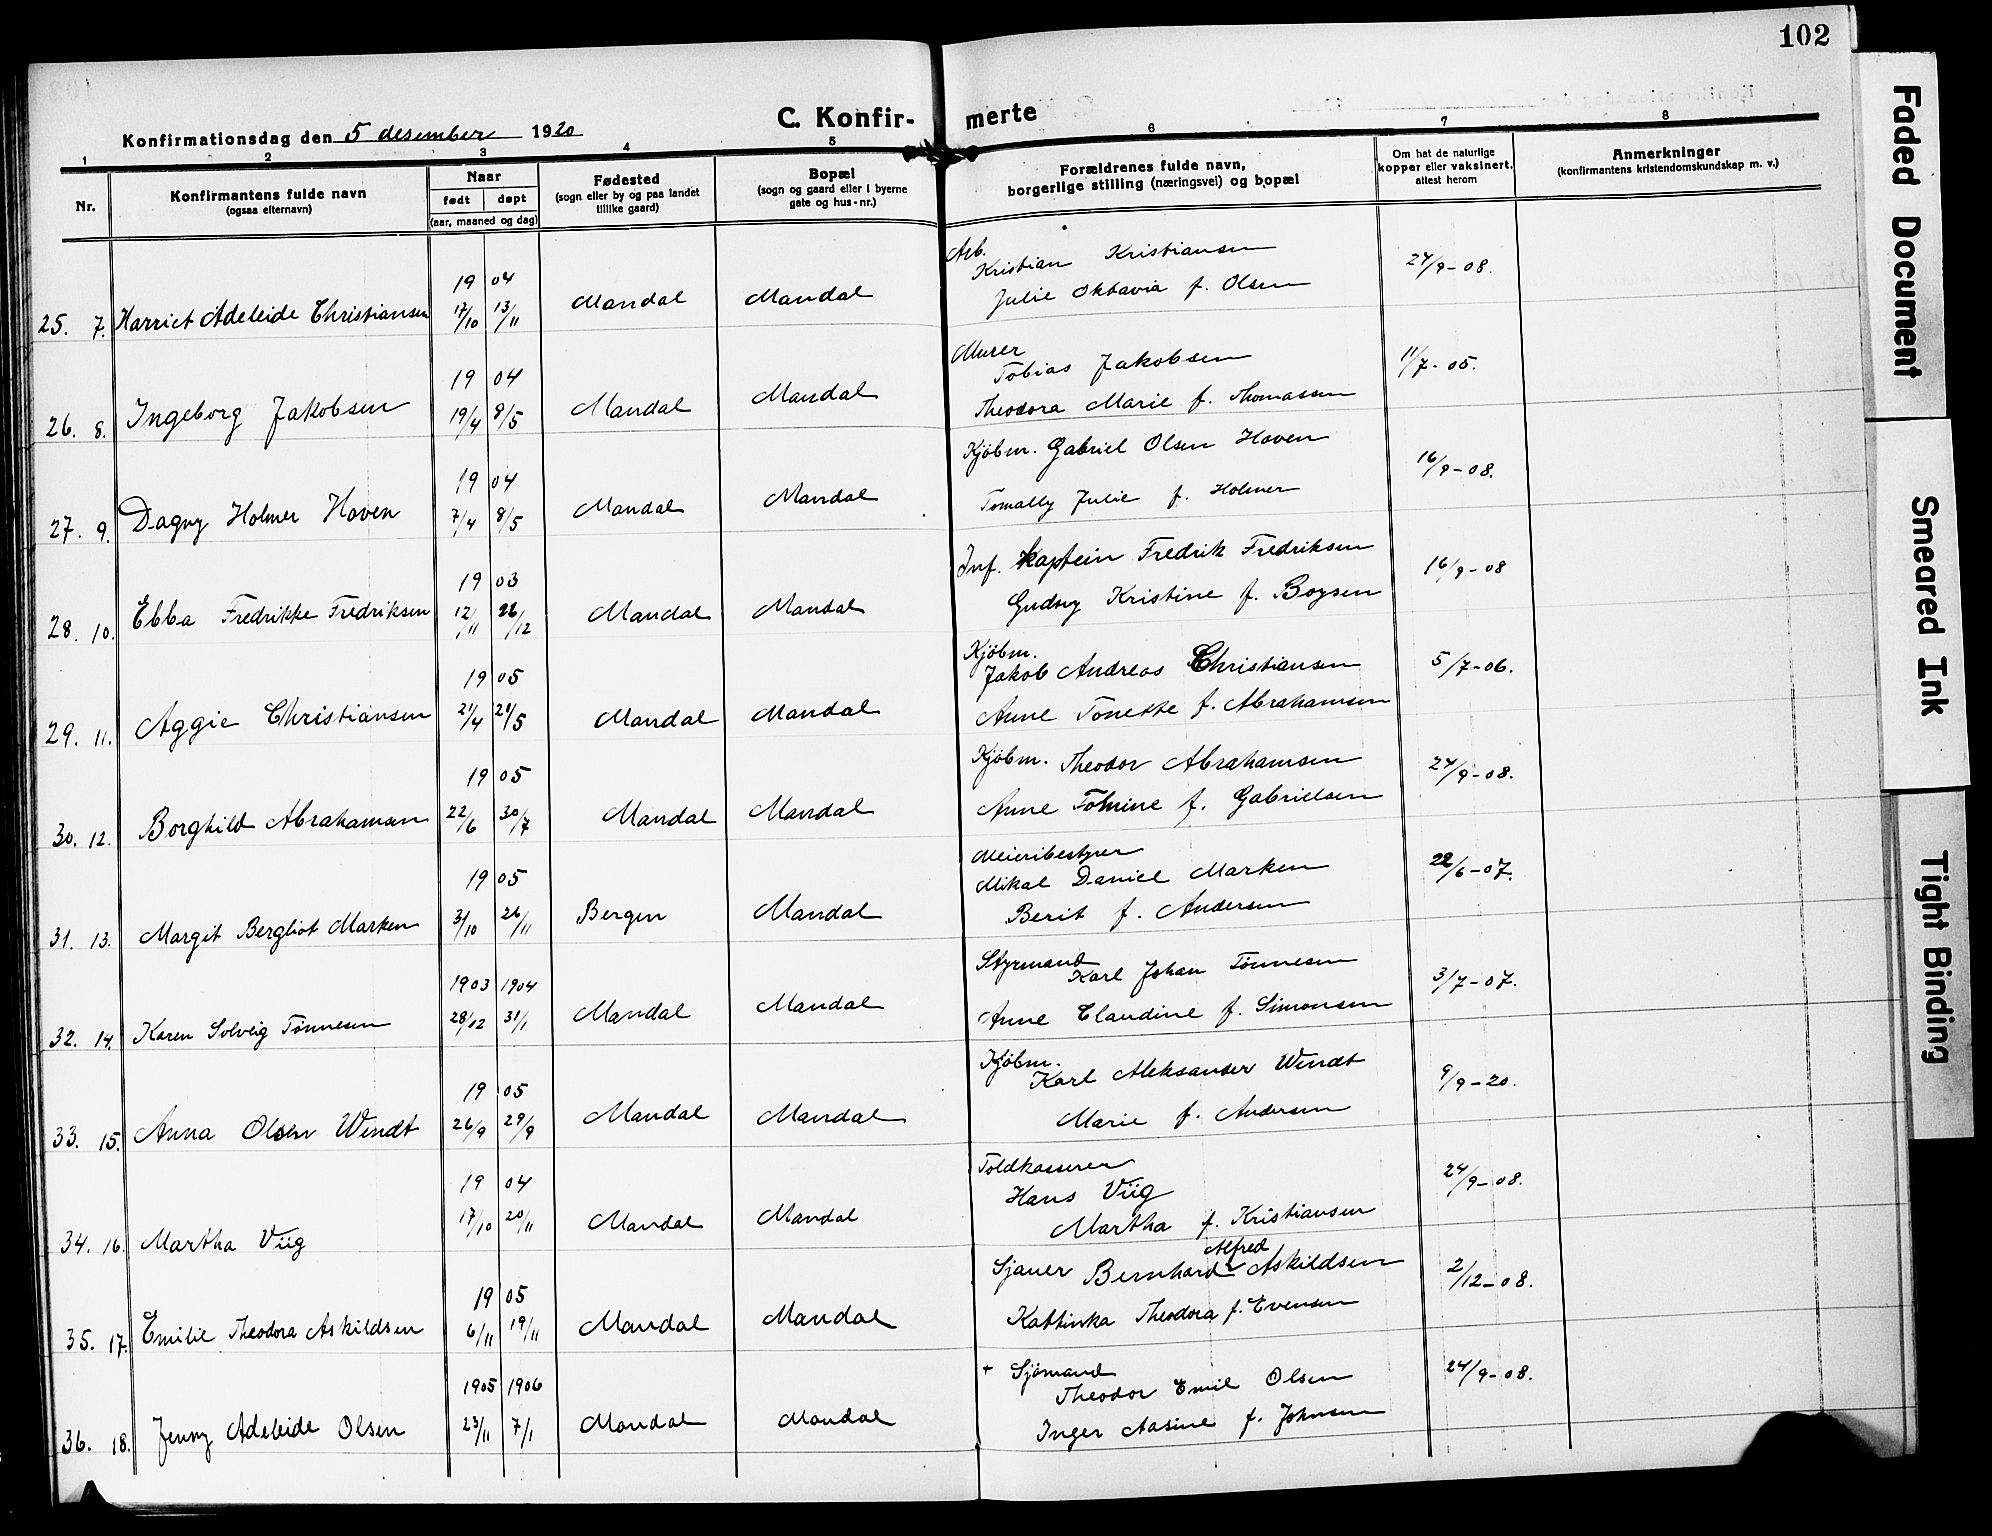 102
C. Konfirmerte
Konfirmationsdag den 5 desember 1920
1 2 3 4 5 6 7 8
Nr.
Konfirmantens fulde navn
(ogsaa efternavn)
Naar
født døpt
(aar, maaned og dag)
Fødested
(sogn eller by og paa landet
tillike gaard)
Bopæl
(sogn og gaard eller i byerne
gate og hus-nr.)
Forældrenes fulde navn,
borgerlige stilling (næringsvei) og bopæl
Om hat de naturlige
kopper eller vaksinert,
attest herom
Anmerkninger
(konfirmantens kristendomskundskap m. v.)
Arb.
19 04 Kristian Kristiansen 24/9-08.
25. 7. Harriet Adeleide Christiansen 17/10 13/11 Mandal Mandal Julie Oktavia f. Olsen
Murer
19 04 Tobias Jakobsen 11/7-05.
26. 8. Ingeborg Jakobsen 19/4 8/5 Mandal Mandal Theodora Marie f. Thomassen
19 04 Kjöbm. Gabriel Olsen Hoven 16/9-08.
27. 9. Dagny Holmer Hoven 7/4 8/5 Mandal Mandal Tomally Julie f. Holmer
19 03 Inf. Kaptein Fredrik Fredriksen 16/9-08
28. 10. Ebba Fredrikke Fredriksen 12/11 26/12 Mandal Mandal Gudny Kristine f. Boysen
Kjöbm.
19 05 Jakob Andreas Christiansen 5/7-06.
29. 11. Aggie Christiansen 21/4 21/5 Mandal Mandal Anne Tonette f. Abrahamsen
19 05 Kjöbm. Theodor Abrahamsen 24/9-08.
30. 12. Borghild Abrahamsen 22/6 30/7 Mandal Mandal Anne Tomine f. Gabrielsen
Meieribestyrer
19 05 Mikal Daniel Marken 22/6-07.
31. 13. Margit Bergliot Marken 3/10 26/11 Bergen Mandal Berit f. Andersen
Styrmand
1903 1904 Karl Johan Tönnesen 3/7-07.
32. 14. Karen Solveig Tönnesen 28/12 31/1 Mandal Mandal Anne Claudine f. Simonsen
Kjöbm.
19 05 Karl Aleksander Wendt 9/9-20.
33. 15. Anna Olsen Wendt 26/9 29/9 Mandal Mandal Marie f. Andersen
Toldkasserer
19 04 Hans Viig 24/9-08.
34. 16. Martha Viig 17/10 20/11 Mandal Mandal Martha f. Kristiansen
Alfred
19 05 Sjauer Bernhard Askildsen 2/12-08.
35. 17. Emilie Theodora Askildsen 6/11 19/11 Mandal Mandal Kattinka Theodora f. Evensen
+ Sjömand
1905 1906 Theodor Emil Olsen 24/9-08.
36. 18. Jenny Adeleide Olsen 23/11 7/1 Mandal Mandal Inger Aasine f. Johnsen
Faded Document
Smeared Ink
Tight Binding